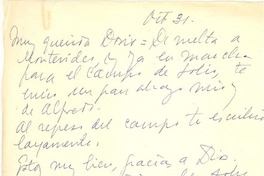 Oct 31.
Muy querida Doris = De vuelta a
Montevideo, y ya en marcha
para el campo de Solís, te
envío un gran abrazo mío y
de Alfredo.
Al regreso del campo te escribiré
largamente.
Estoy muy bien, gracias a Dios.